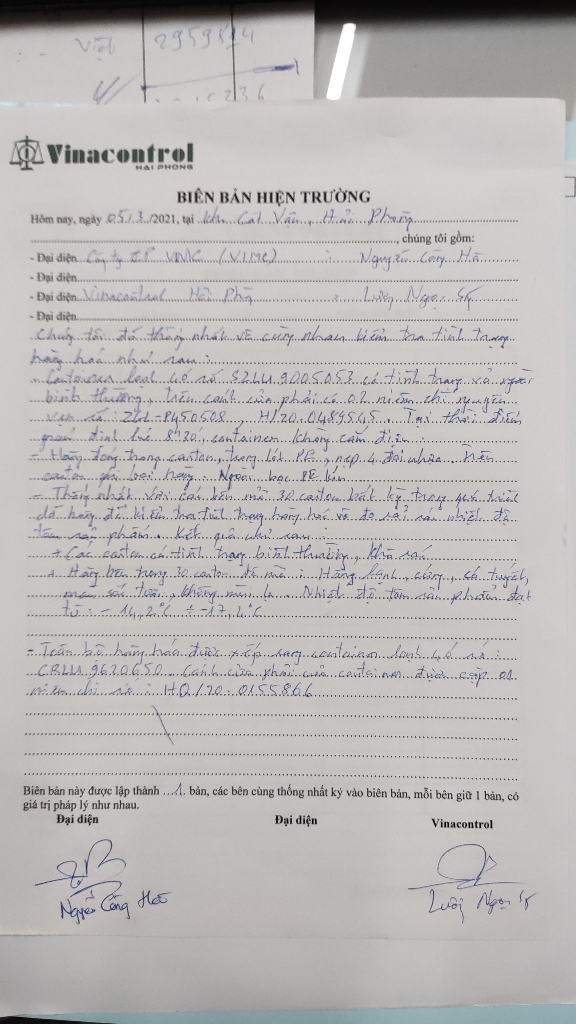 Việt 2959814
236
Vinacontrol
HAI PHONG
BIÊN BẢN HIỆN TRƯỜNG
Hôm nay, ngày 05/3/2021, tại khu Cát Vân, Hải Phòng
, chúng tôi gồm:
- Đại diện Công ty CP VIMC (VIMC) : Nguyễn Công Hà
- Đại diện
- Đại diện Vinacontrol Hải Phòng : Ngọc
- Đại diện
Chúng tôi đã thống nhất về cùng nhau kiểm tra tình trạng
hàng hoá như sau:
- Container lạnh 40' số SZLU 9005053 có tình trạng vỏ ngoài
bình thường, trên cánh cửa phải có 02 niêm chì nguyên
vẹn số: ZGL-P450508, H/20.0489545. Tại thời điểm
giám định lúc 8h20, container không cắm điện.
- Hàng đóng trong carton, trong lót PE, nẹp 4 đai nhựa. Trên
carton ghi loại hàng. Ngoài bọc PE
- Thống nhất với các bên mở 30 carton bất kỳ trong quá trình
dỡ hàng để kiểm tra tình trạng hàng hoá và đo xác suất nhiệt độ
tâm sản phẩm. Kết quả như sau:
+ Các carton có tình trạng bình thường, khô ráo
+ Hàng bên trong 30 carton đã mở: Hàng lạnh, cứng, có tuyết,
màu sắc tươi, không mùi lạ. Nhiệt độ tâm sản phẩm đạt
từ: - 14,2°C ÷ -17,2°C
- Toàn bộ hàng hóa được xếp sang container lạnh 40' số:
CRLU 9620650. Cánh cửa phải của container được cặp 01
niêm chì số: HQ/20-0155866
Biên bản này được lập thành 1 bản, các bên cùng thống nhất ký vào biên bản, mỗi bên giữ 1 bản, có
giá trị pháp lý như nhau.
Đại diện Đại diện Vinacontrol
Nguyễn Công Hà Ngọc